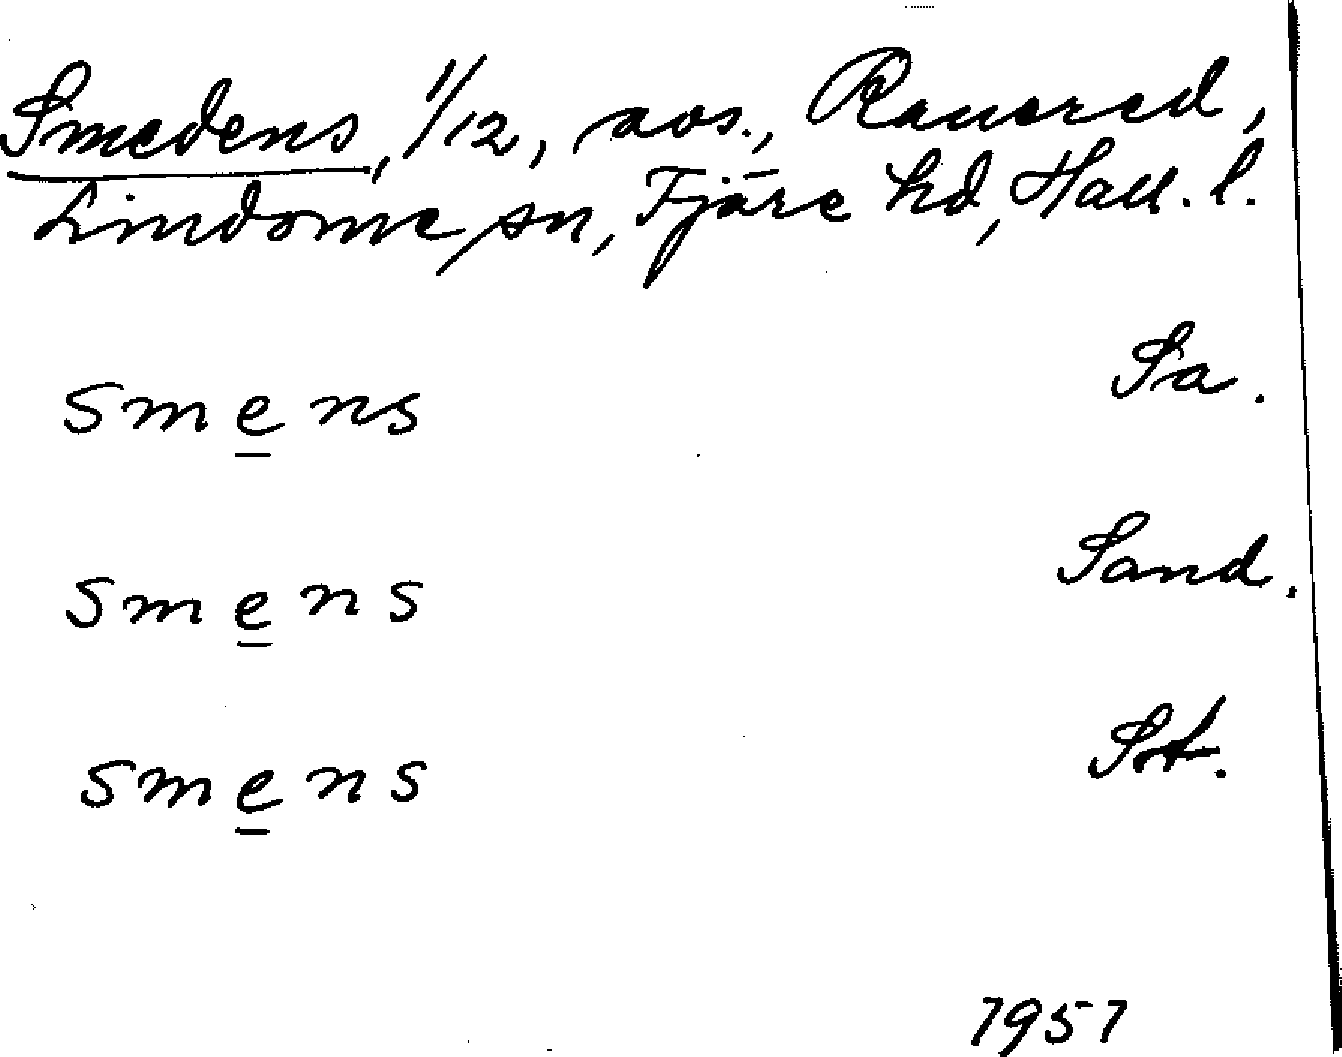 Smedens, 1/12, avs., Ranered,
Lindome sn, Fjäre hd, Hall. l.
smens Sa.
smens Sand.
smens St.
1957